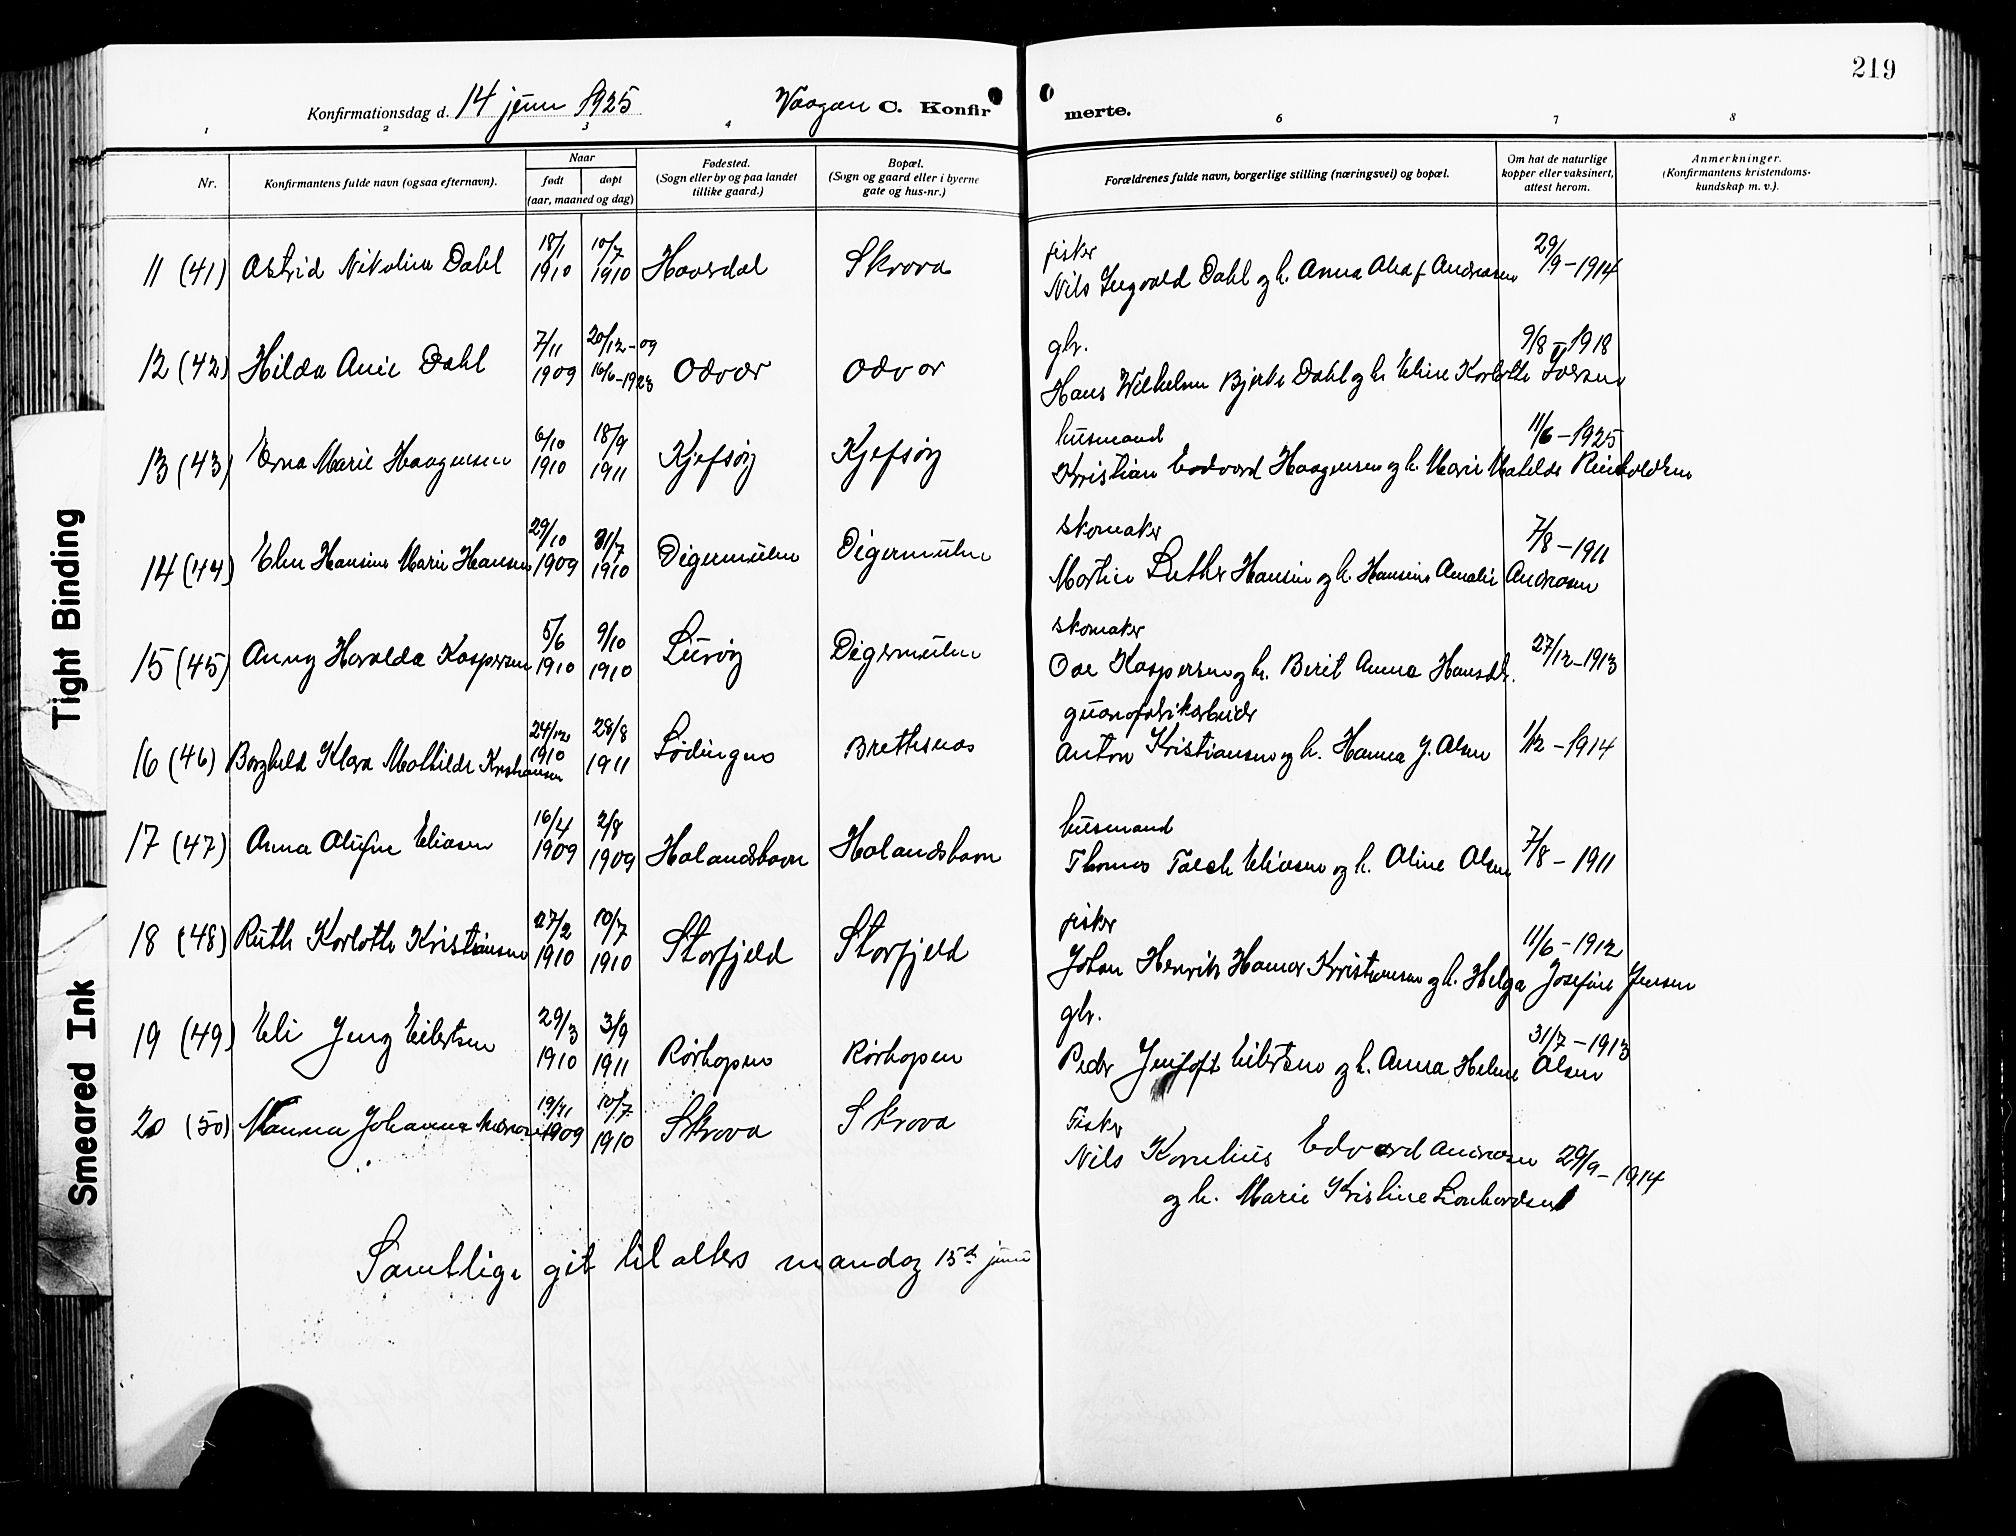 219
Konfirmationsdag d. 14 juni 1925 Vaagan C. Konfirmerte.
1 2 3 4 6 7 8
Nr. Konfirmantens fulde navn (ogsaa efternavn). Naar født døpt (aar, maaned og dag) Fødested. (Sogn eller by og paa landet tillike gaard.) Bopæl. (Sogn og gaard eller i byerne gate og hus-nr.) Forældrenes fulde navn, borgerlige stilling (næringsvei) og bopæl. Om hat de naturlige kopper eller vaksinert, attest herom. Anmerkninger. (Konfirmantens kristendomskundskap m. v.).
11 (41) Astrid Nikoline Dahl 18/1 1910 10/7 1910 Haversdal Skrova fisker
Nils Ingvald Dahl og h. Anna Olea f Andreasen 29/9-1914
12 (42) Hilda Anie Dahl 7/11 1909 20/12-09 16/6-1923 Odvær Odvær gbr.
Hans Wilhelm Bjerke Dahl og h. Eline Karlotte Iversen 9/8-1918
13 (43) Erna Marie Haagensen 6/10 1910 18/9 1911 Kjefsøy Kjefsøy husmand
Kristian Edvard Haagensen og h. Marie Matilde Reinholdsen 11/6-1925
14 (44) Elen Hansine Marie Hansen 29/10 1909 31/7 1910 Digermulen Digermulen skomaker
Martin Luther Hansen og h. Hansine Amalie Andreasen 7/8-1911
15 (45) Anny Haralda Kaspersen 5/6 1910 9/10 1910 Lurøy Digermulen skomaker
Ole Kaspersen og h. Berit Anna Hansdtr. 27/12-1913
16 (46) Borghild Klara Mathilde Kristiansen 24/12 1910 28/8 1911 Lødingen Brettesnes guanofabrikarbeider
Anton Kristiansen og h. Hanna J. Olsen 1/12-1914
17 (47) Anna Olufine Eliasen 16/4 1909 2/8 1909 Holandshavn Holandshavn husmand
Thomas Falch Eliasen og h. Oline Olsen 7/8-1911
18 (48) Ruth Karlotte Kristiansen 27/2 1910 10/7 1910 Storfjeld Storfjeld fisker
Johan Henrik Hamar Kristiansen og h. Helga Josefine Jensen 11/6-1912
19 (49) Eli Jeny Eilertsen 29/3 1910 3/9 1911 Rørhopen Rørhopen gbr.
Peder Jentoft Eilertsen og h. Anna Helene Olsen 31/7-1913
20 (50) Nanna Johanna Andreasen 19/11 1909 10/7 1910 Skrova Skrova Fisker
Nils Kornelius Edvard Andreasen 29/9-1914
og h. Marie Kristine Lonhardsen
Samtlige git til alters mandag 15de juni
Tight Binding
Smeared Ink